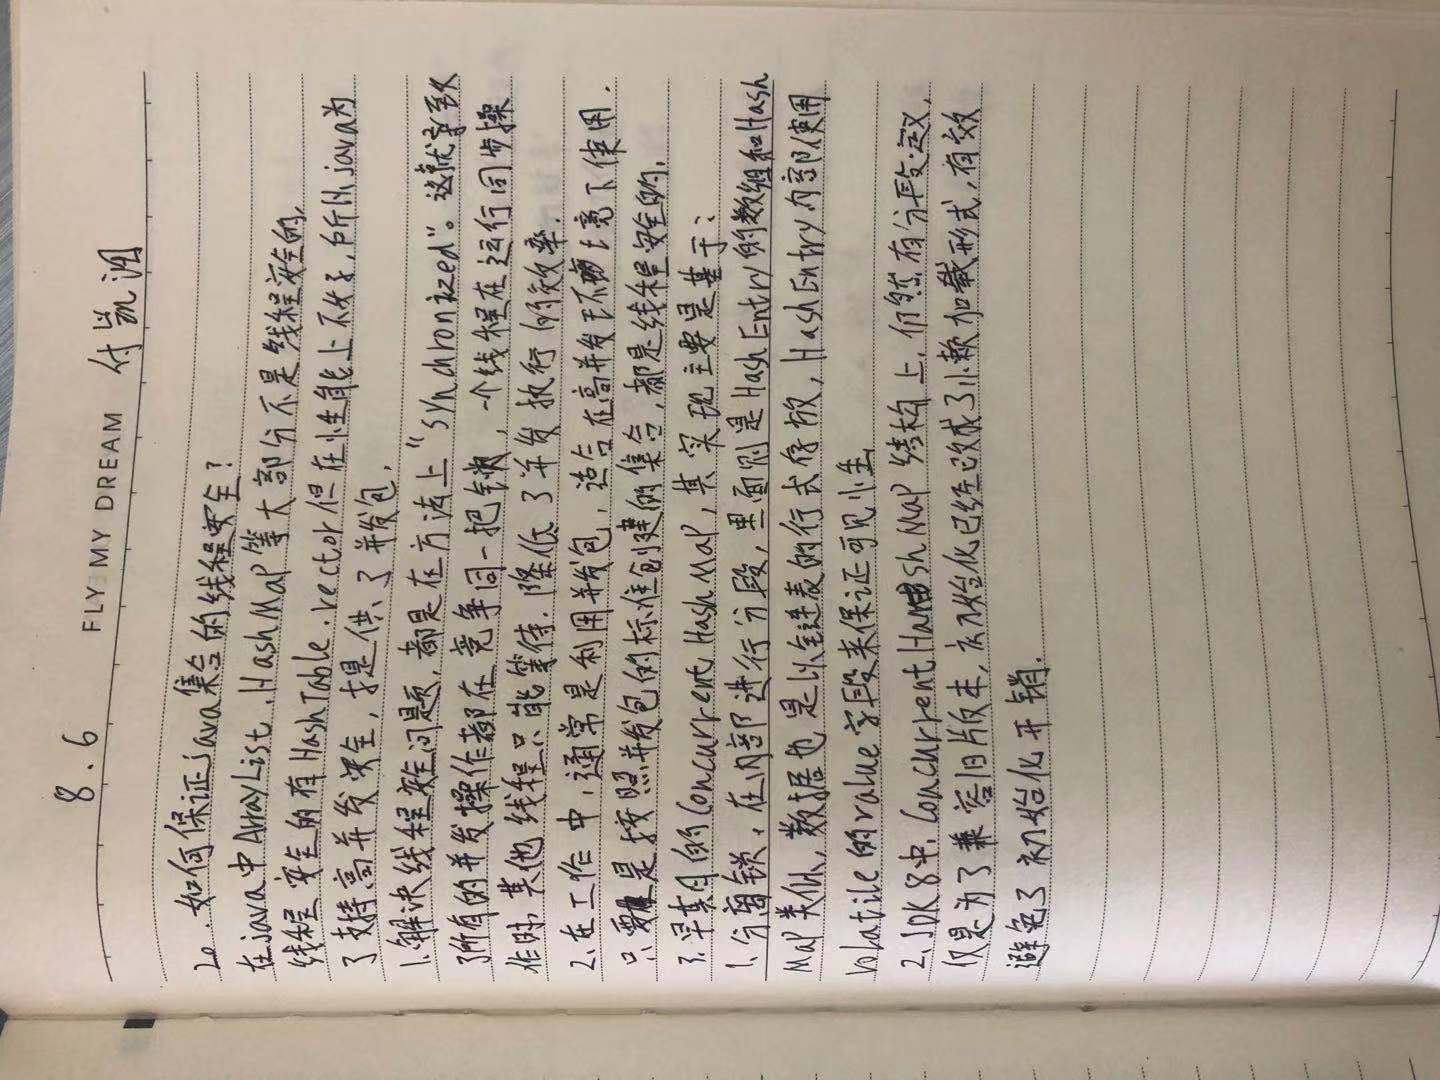 8.6
FLY MY DREAM 付凯
20.如何保证Java集合的线程安全?
在java中ArrayList、HashMap等大部分不是线程安全的,
线程安全的有HashTable、vector但在性能上不太好,所以java为
了支持高并发安全,才提供了并发包,
1、解决线程安全问题,都是在方法上"Synchronized"。这就导致
了所有的并发操作都在竞争同一把锁,一个线程在运行同步操
作时 其他线程只能等待.降低了并发执行的效率.
2、在工作中,通常是利用并发包,适合在高并发下的场境下使用.
只要是按照并发包的标准创建的集合,都是线程安全的,
3、早期的ConcurrentHashMap,其实现主要是基于:
1、分离锁、在内部进行分段,里面则是HashEntry的数组和Hash
Map类似,数据也是以链表的行式存放,HashEntry内部使用
volatile的value字段来保证可见性
2、JDK8中,ConcurrentHashMap结构上,仍然有分段定义,
仅是为了兼容旧版本,初始化已经改成了懒加载形式,有效
避免了初始化开销.